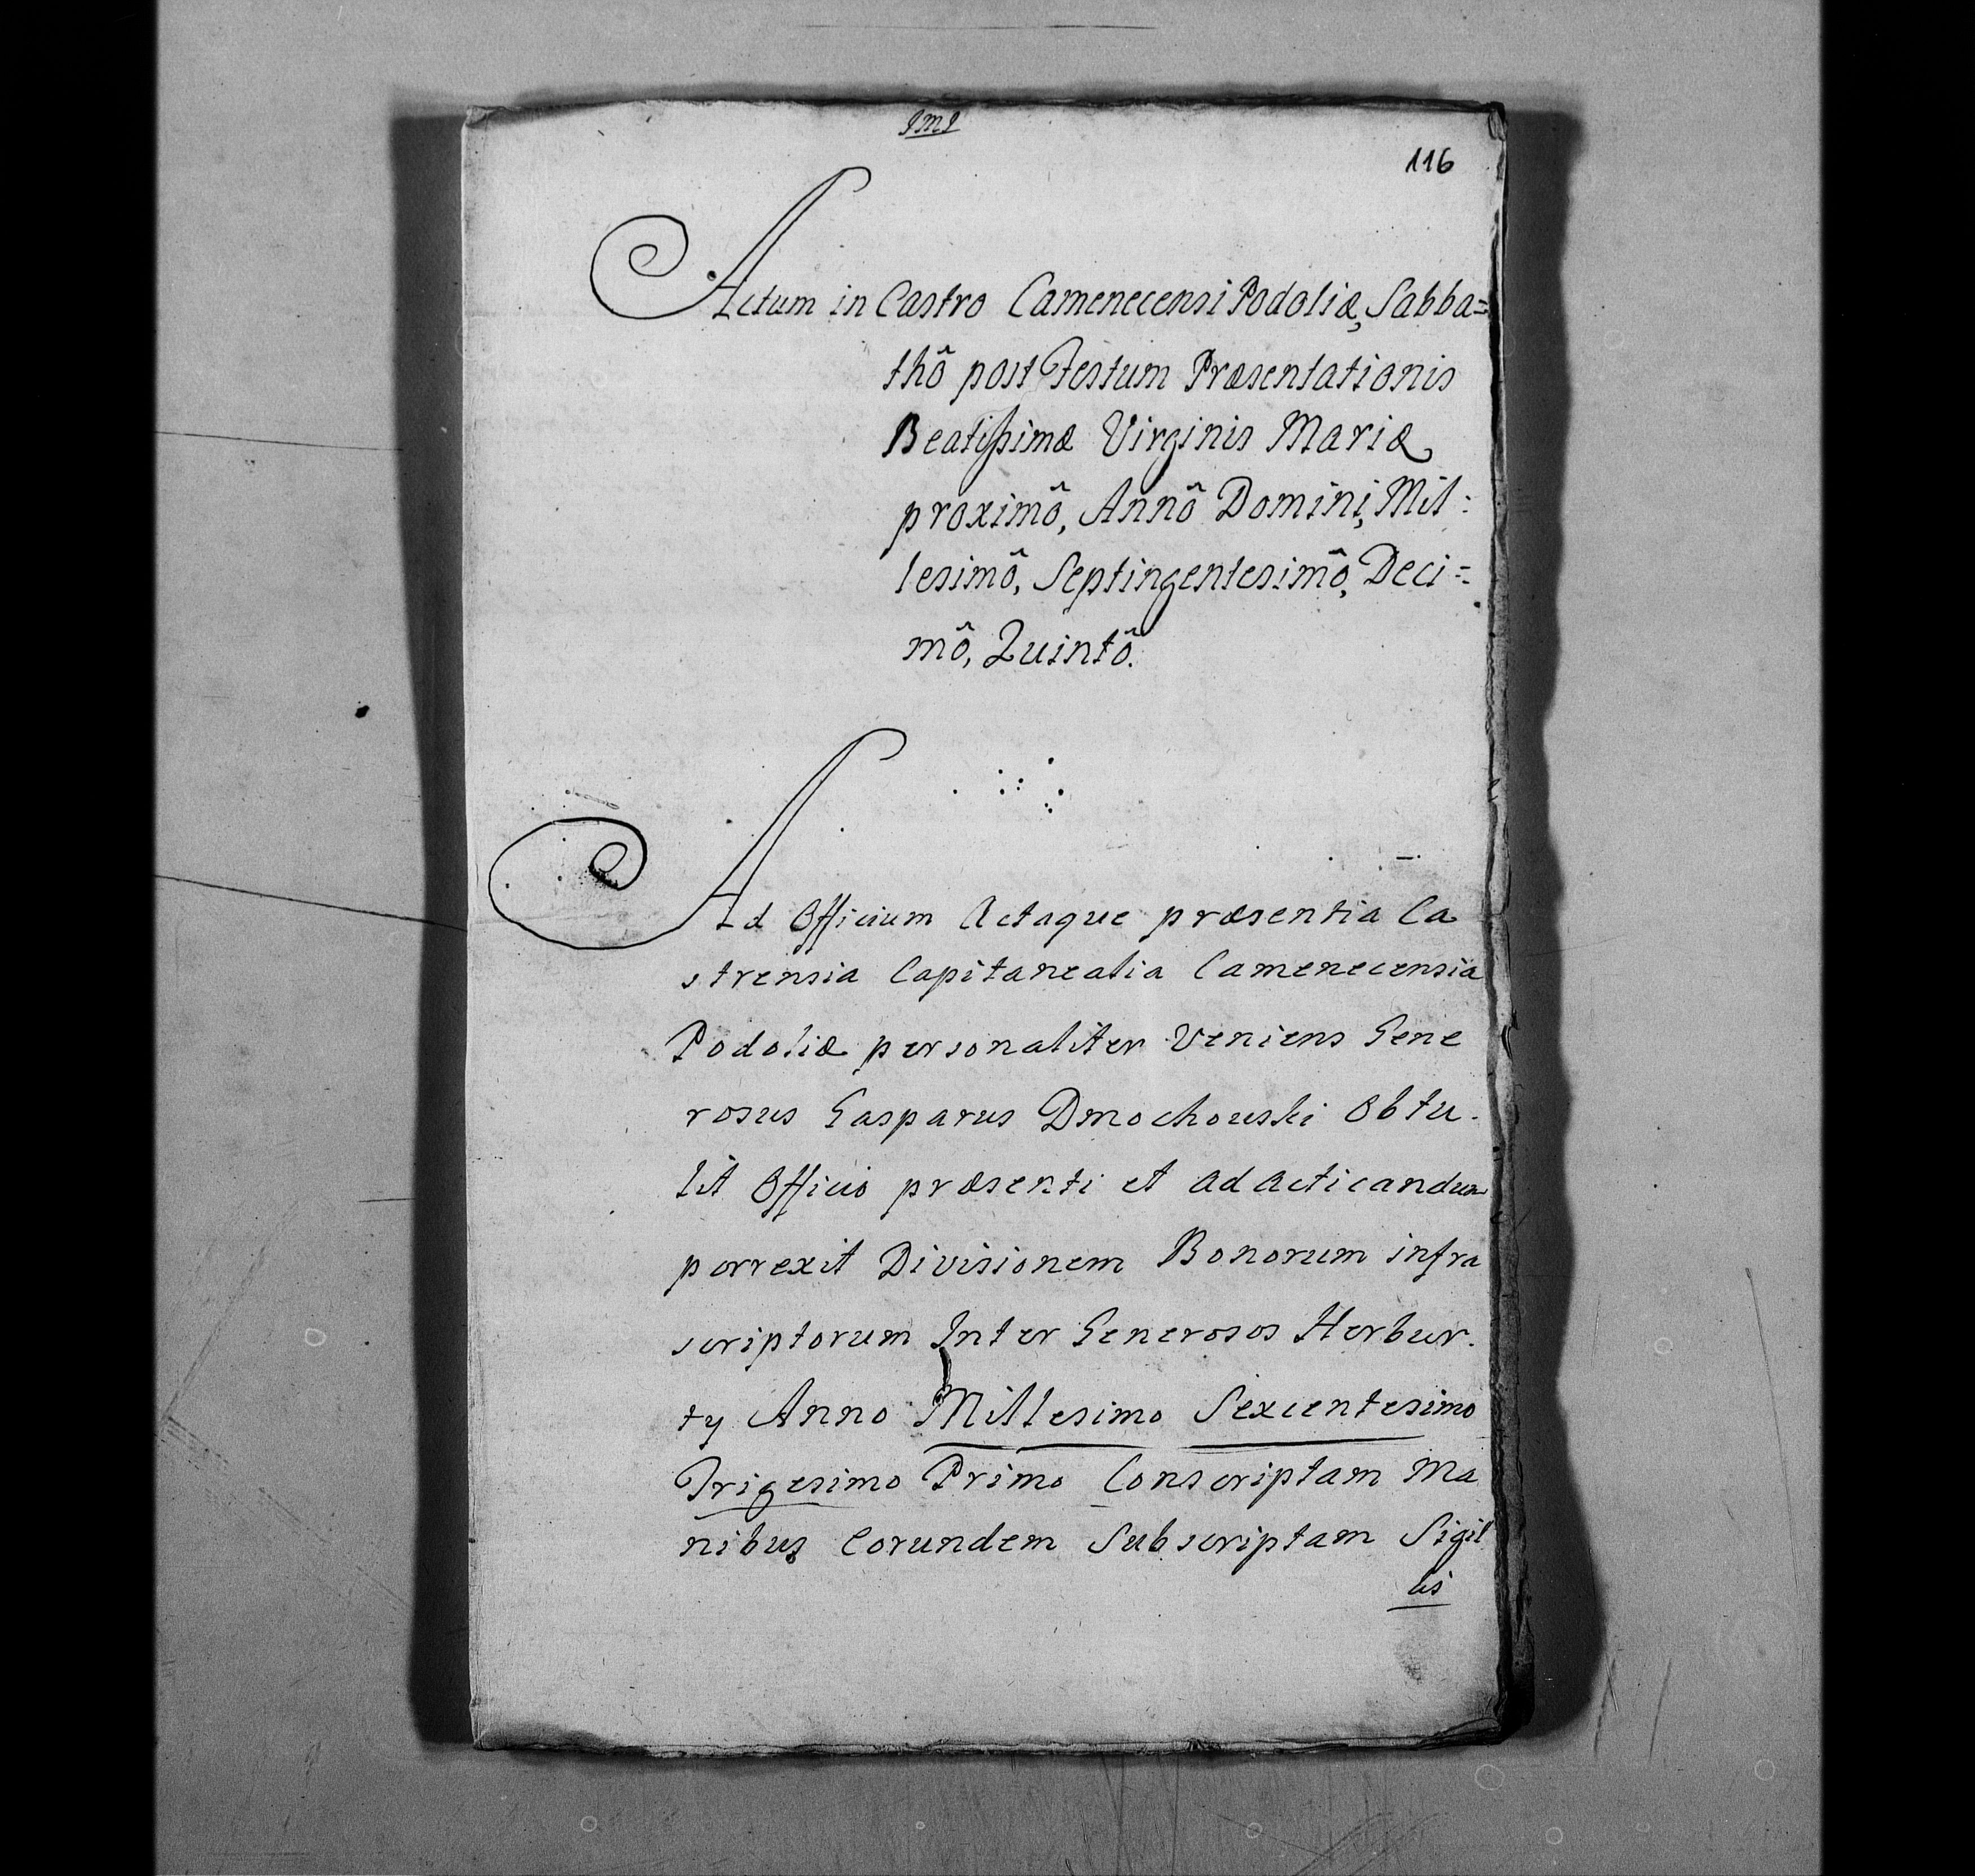 JMJ
116
Actum in Castro Camenecensi Podoliæ, Sabba=
thô post Festum Præsentationis
Beatissimæ Virginis Mariæ
proximô, Annô Domini, Mil:
lesimô, Septingentesimô, Deci=
mô, Quintô.
Ad Officium Actaque præsentia Ca
strensia Capitanealia Camenecensia
Podoliæ personaliter Veniens Gene
rosus Gasparus Dmochouski Obtu.
lit Officio præsenti et ad acticandum
porrexit Divisionem Bonorum infra
scriptorum Inter Generosos Herbur.
ty Anno Millesimo Sexcentesimo
Trigesimo Primo Conscriptam Ma
nibus Eorundem Subscriptam Sigil
lis